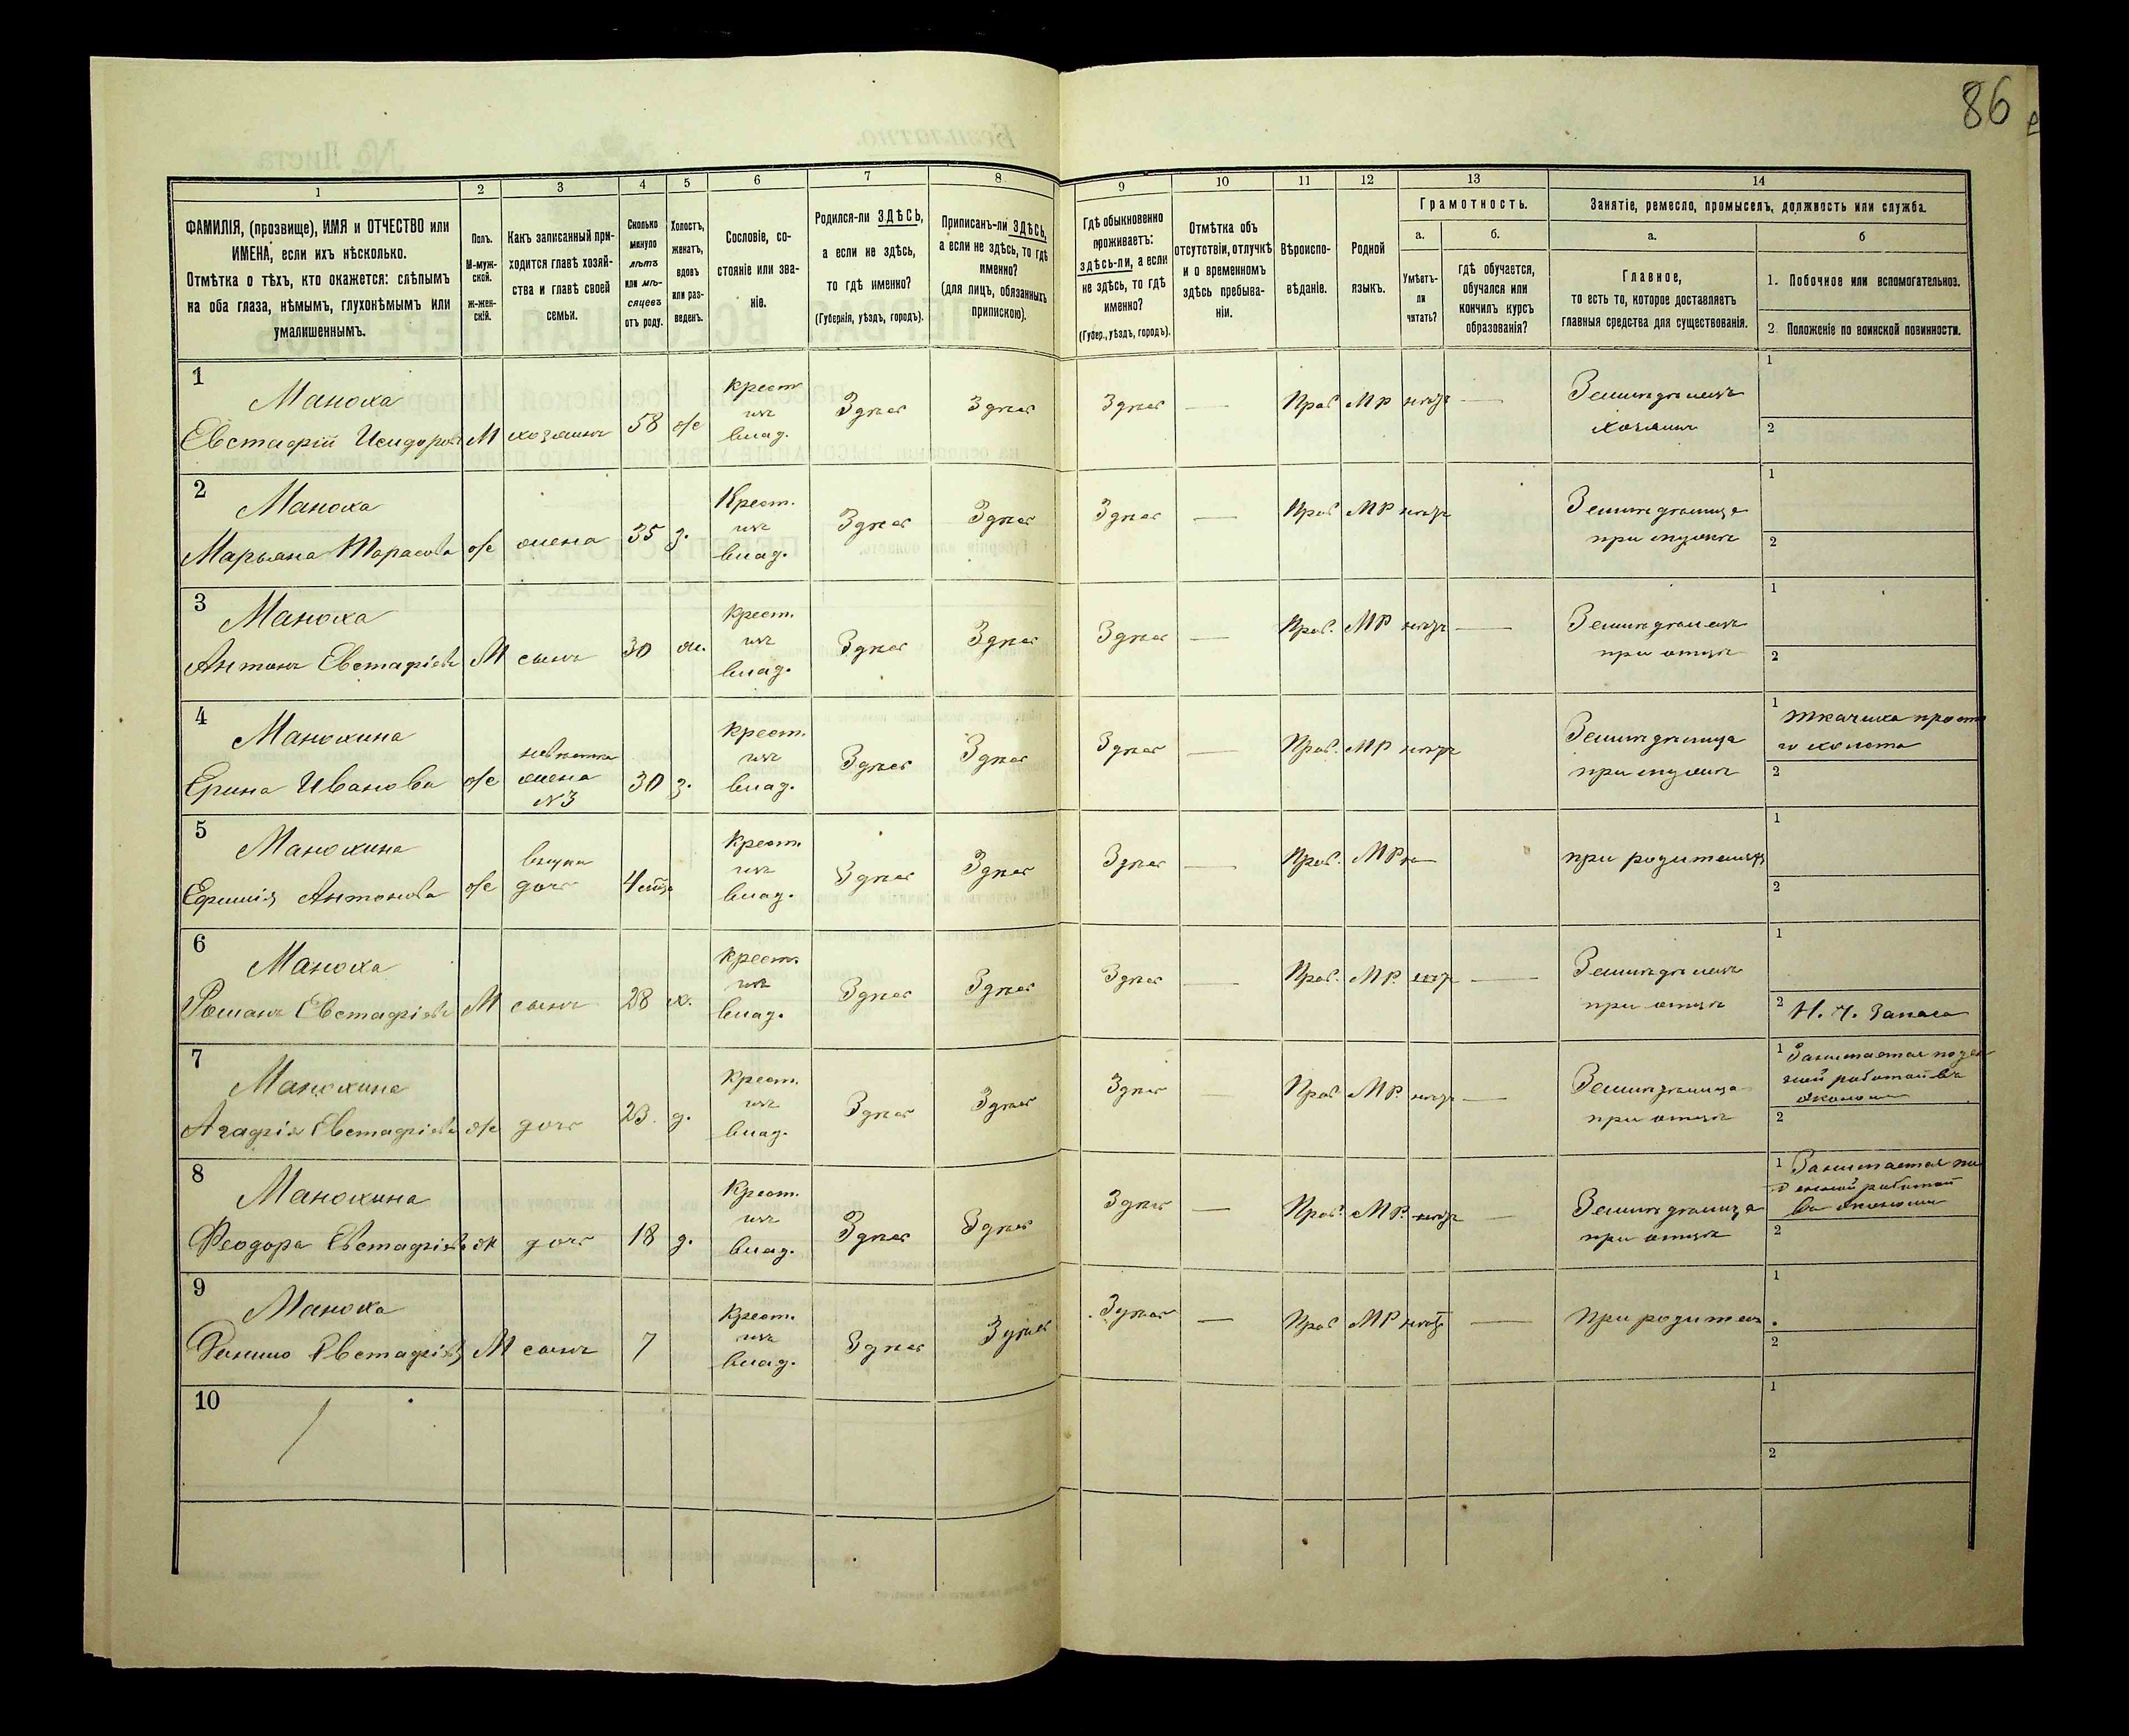 86
1 2 3 4 5 6 7 8 9 10 11 12 13 14
ФАМИЛІЯ, (прозвище), ИМЯ и ОТЧЕСТВО или
ИМЕНА, если ихъ нѣсколько.
Отмѣтка о тѣхъ, кто окажется: слѣпымъ
на оба глаза, нѣмымъ, глухонѣмымъ или
умалишеннымъ.
Полъ.
М-муж-
ской.
Ж-жен-
скій.
Какъ записанный при-
ходится главѣ хозяй-
ства и главѣ своей
семьи.
Сколько
минуло
лѣтъ
или мѣ-
сяцевъ
отъ роду.
Холостъ,
женатъ,
вдовъ
или раз-
веденъ.
Сословіе, со-
стояніе или зва-
ніе.
Родился-ли ЗДѢСЬ,
а если не здѣсь,
то гдѣ именно?
(Губернія, уѣздъ, городъ).
Приписанъ-ли ЗДѢСЬ,
а если не здѣсь, то гдѣ
именно?
(для лицъ, обязанныхъ
припискою).
Гдѣ обыкновенно
проживаетъ:
здѣсь-ли, а если
не здѣсь, то гдѣ
именно?
(Губер., уѣздъ, городъ).
Отмѣтка объ
отсутствіи, отлучкѣ
и о временномъ
здѣсь пребыва-
ніи.
Вѣроиспо-
вѣданіе.
Родной
языкъ.
Грамотность.
а.
Умѣетъ-
ли
читать?
б.
гдѣ обучается,
обучался или
кончилъ курсъ
образованія?
Занятіе, ремесло, промыселъ, должность или служба.
а.
Главное,
то есть то, которое доставляетъ
главныя средства для существованія.
б
1. Побочное или вспомогательноз.
2. Положеніе по воинской повинности.
1
Маноха
Евстафій Исидоровъ М хозяинъ 58 ж
Крест.
изъ
влад.
Здѣсь Здѣсь Здѣсь — Прав МР нѣтъ —
Земледѣлецъ
хозяинъ
1
2
2
Маноха
Марьяна Тарасова ж жена 35 з.
Крест.
изъ
влад.
Здѣсь Здѣсь Здѣсь — Прав МР нѣтъ
Земледѣлица
при мужѣ
1
2
3
Маноха
Антонъ Евстафіевъ М сынъ 30 ж.
Крест.
изъ
влад.
Здѣсь Здѣсь Здѣсь — Прав. МР нѣтъ —
Земледѣлецъ
при отцѣ
1
2
4
Манохина
Ерина Иванова ж
невѣстка
жена
№3
30 з.
Крест.
изъ
влад.
Здѣсь Здѣсь Здѣсь — Прав. МР нѣтъ
Земледѣлица
при мужѣ
1 Ткачиха просто
го холста
2
5
Манохина
Ефимія Антонова ж
внучка
дочь
4
Крест.
изъ
влад.
Здѣсь Здѣсь Здѣсь — Прав. МР —
при родителяхъ
1
2
6
Маноха
Романъ Евстафіевъ М сынъ 28 х.
Крест.
изъ
влад.
Здѣсь Здѣсь Здѣсь — Прав. МР. —
Земледѣлецъ
при отцѣ
1
2 Н. Ч. Запаса
7
Манохина
Агафія Евстафіева ж дочь 23. д.
Крест.
изъ
влад.
Здѣсь Здѣсь Здѣсь — Прав МР. нѣтъ —
Земледѣлица
при отцѣ
1 Занимается поден
ной работой въ
економіи
2
8
Манохина
Феодора Евстафіева ж дочь 18 д.
Крест.
изъ
влад.
Здѣсь Здѣсь Здѣсь — Прав. МР. нѣтъ —
Земледѣлица
при отцѣ
1 Занимается по
денной работой
въ економіи
2
9
Маноха
Евстафіевъ М сынъ 7
Крест.
изъ
влад.
Здѣсь Здѣсь Здѣсь — Прав МР нѣтъ —
При родителяхъ
1
2
10
1
2